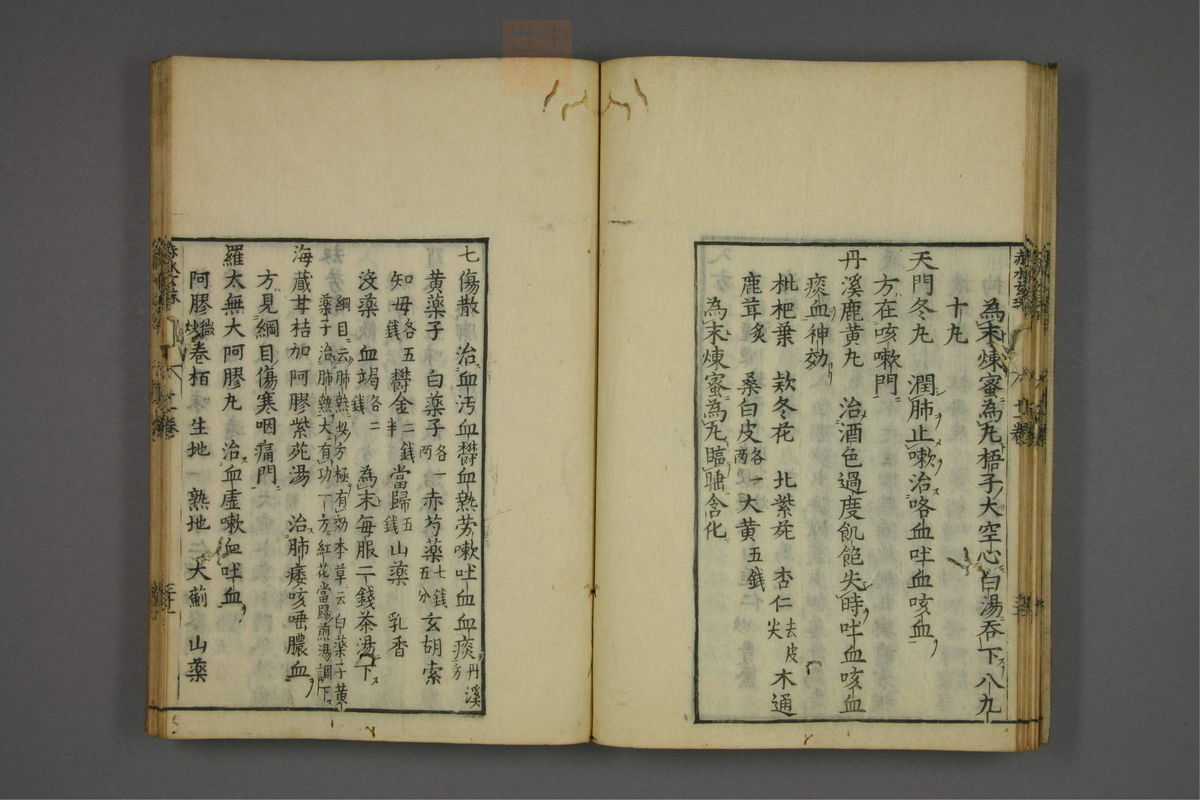 為末煉蜜為丸梧子大空心白湯吞下八九
十丸
天門冬丸 潤肺止嗽治咯血吐血咳血
方在咳嗽門
丹溪鹿黄丸 治酒色過度飢飽失時吐血咳血
痰血神効
枇杷葉 欵冬花 北紫菀 杏仁去皮尖 木通
鹿茸炙 桑白皮各一両 大黄五錢
為末煉蜜為丸臨睡含化
七傷散 治血汚血欝血熱労嗽吐血血痰丹溪方
黄薬子 白薬子各一両 赤芍薬七錢五分 玄胡索
知母各五錢 欝金二錢半 當歸五錢 山薬 乳香
没薬 血竭各二錢 為末毎服二錢茶湯下
綱目云肺熱
藥子治肺熱大有功一方紅花當歸煎湯調下
海蔵甘桔加阿膠紫菀湯 治肺痿咳唾膿血
方見綱目傷寒咽痛門
羅太無大阿膠丸 治血虚嗽血吐血
阿膠微炒 卷栢 生地 熟地 大薊 山薬